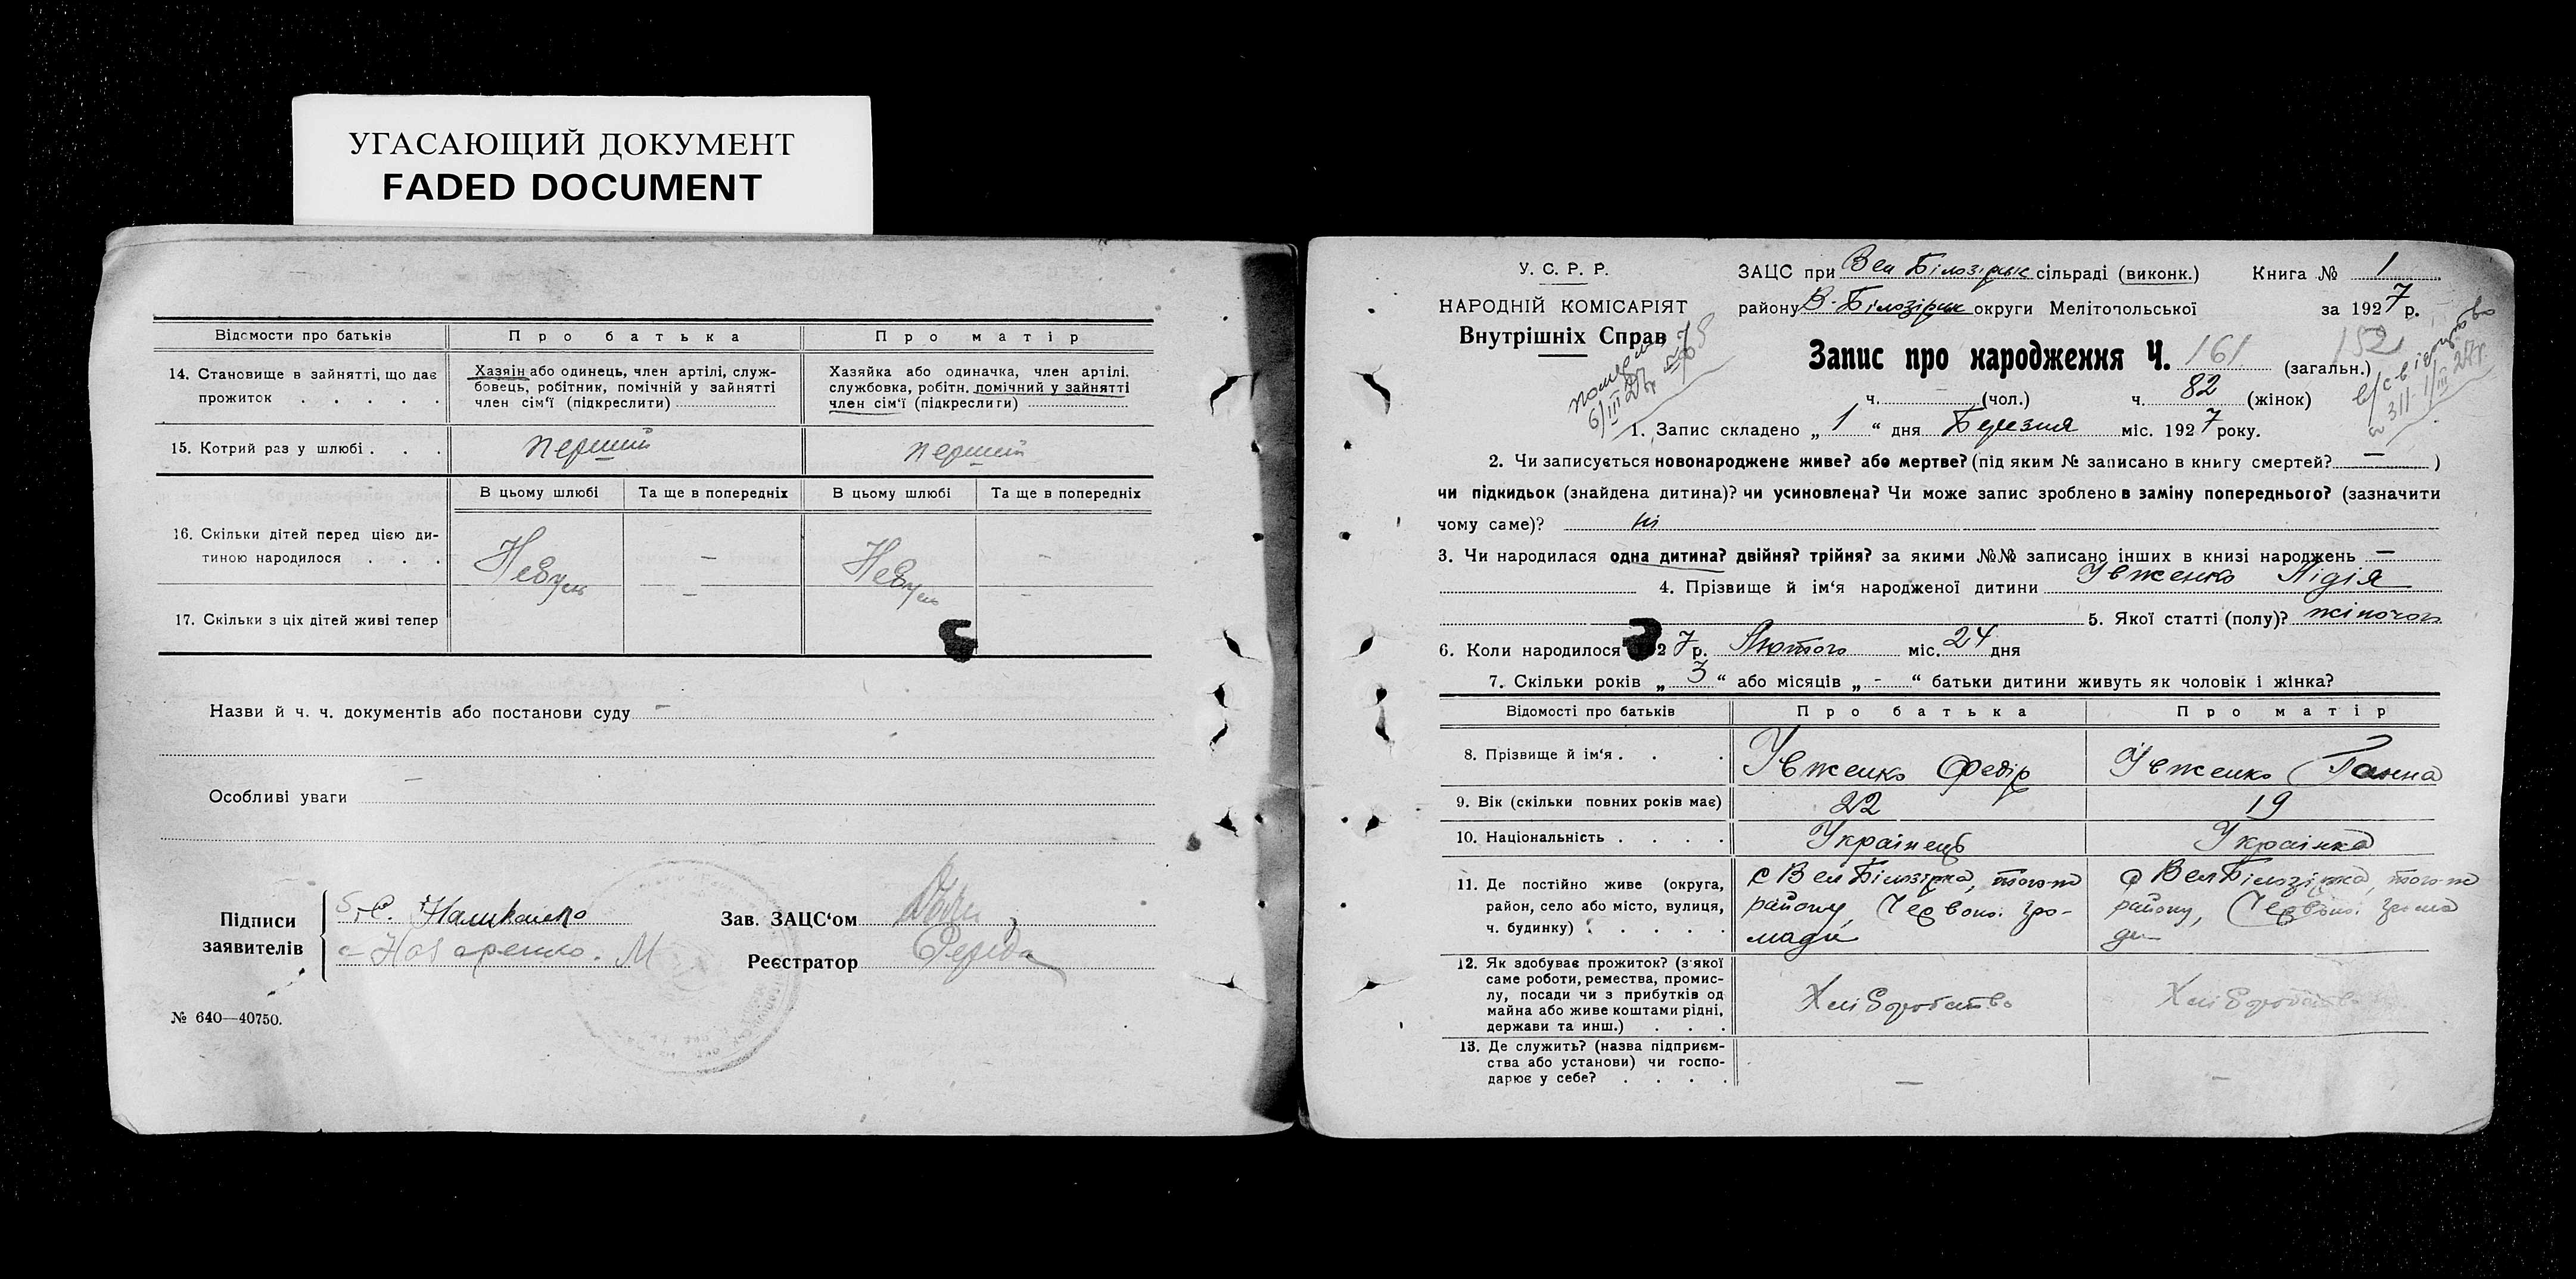 УГАСАЮЩИЙ ДОКУМЕНТ
FADED DOCUMENT
Відомости про батьків
Про батька
Про матір
14. Становище в зайнятті, що дає прожиток . . . . .
Хазяін або одинець, член артілі, служ-
бовець, робітник, помічній у зайнятті
член сім'ї (підкреслити)
Хазяйка або одиначка, член артілі,
службовка, робітн. помічний у зайнятті
член сім'ї (підкреслити)
15. Котрий раз у шлюбі . . .
перший
перший
В цьому шлюбі
Та ще в попередніх
В цьому шлюбі
Та ще в попередніх
16. Скільки дітей перед цією ди-
тиною народилося . . .
–
–
17. Скільки з ціх дітей живі тепер
–
–
Назви й ч. ч. документів або постанови суду –
–
Особливі уваги
Підписи
заявителів
Назаренко. М
Зав. ЗАЦС'ом
Реєстратор Середа
№ 640—40750.
У. С. Р. Р.
НАРОДНІЙ КОМІСАРІЯТ
Внутрішніх Справ
ЗАЦС при Вел Білозірськ сільраді (виконк.) Книга № 1
району В-Білозірськ округи Мелітопольської за 1927 р.
Запис про народження Ч. 161 (загальн.)
152
ч. – (чол.) ч. 82 (жінок)
1. Запис складено „ 1 “ дня Березня міс. 1927 року.
2. Чи записується новонароджене живе? або мертве? (під яким № записано в книгу смертей? – )
чи підкидьок (знайдена дитина)? чи усиновлена? Чи може запис зроблено в заміну попереднього? (зазначити
чому саме)? ні
3. Чи народилася одна дитина? двійня? трійня? за якими №№ записано інших в книзі народжень –
4. Прізвище й ім'я народженої дитини Івженко Лідія
5. Якої статті (полу)? жіночої
6. Коли народилося 27 р. Лютого міс. 24 дня
7. Скільки років „ 3 “ або місяців „ - “ батьки дитини живуть як чоловік і жінка?
Відомості про батьків
Про батька
Про матір
8. Прізвище й ім'я . . .
Івженко Федір
Івженко Ганна
9. Вік (скільки повних років має)
22
19
10. Національність . . . .
Украінець
Украінка
11. Де постійно живе (округа,
район, село або місто, вулиця,
ч. будинку) . . . . .
с Вел Білозірка, того-ж
району, Червоної Гро-
мади
с Вел Білозірка, того-ж
району, Червоної Грома
ди
12. Як здобуває прожиток? (з якої
саме роботи, ремества, промис-
лу, посади чи з прибутків од
майна або живе коштами рідні,
держави та инш.) . . .
Хліборобство
Хліборобство
13. Де служить? (назва підприєм-
ства або установи) чи госпо-
дарює у себе? . . . .
–
–